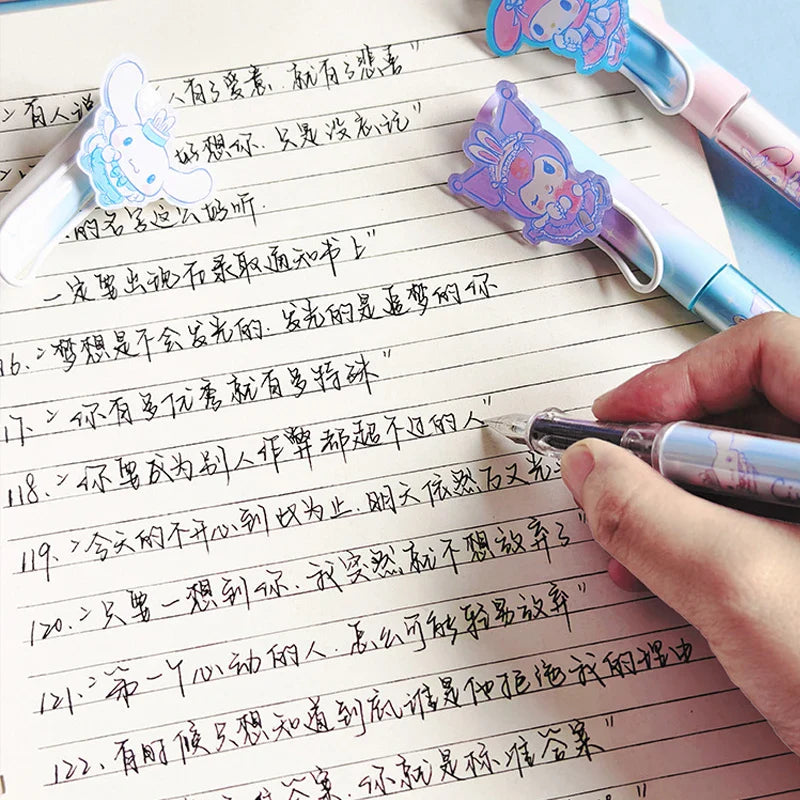 有人说 人有了爱意、就有了悲喜"
好想你、只是没忘记"
的名字这么好听.
一定要出现在录取通知书上"
16、"梦想是不会发光的、发光的是追梦的你
17、"你有多优秀就有多特殊"
118、"你要成为别人作弊都超不过的人"
119、"今天的不开心到此为止、明天依然后又光
120、"只要一想到你、我突然就不想放弃了"
121、"第一个心动的人、怎么可能轻易放弃"
122、有时候只想知道到底谁是他拒绝我的理由
答案、你就是标准答案"